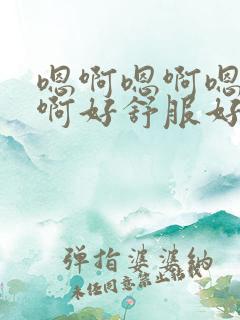 嗯啊嗯啊嗯
啊好舒服好
弹指婆婆納
未经同意禁止转载